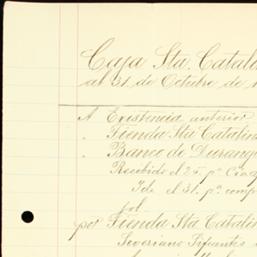 Caja Sta. Catali
al 31 de Octubre de
A Existencia anterior
" Tienda Sta Catalin
" Banco de Durango
Recibido el 25 pa
Id. el 31. pa comp
por Tienda Sta Catalin
Severiano Sifuentes